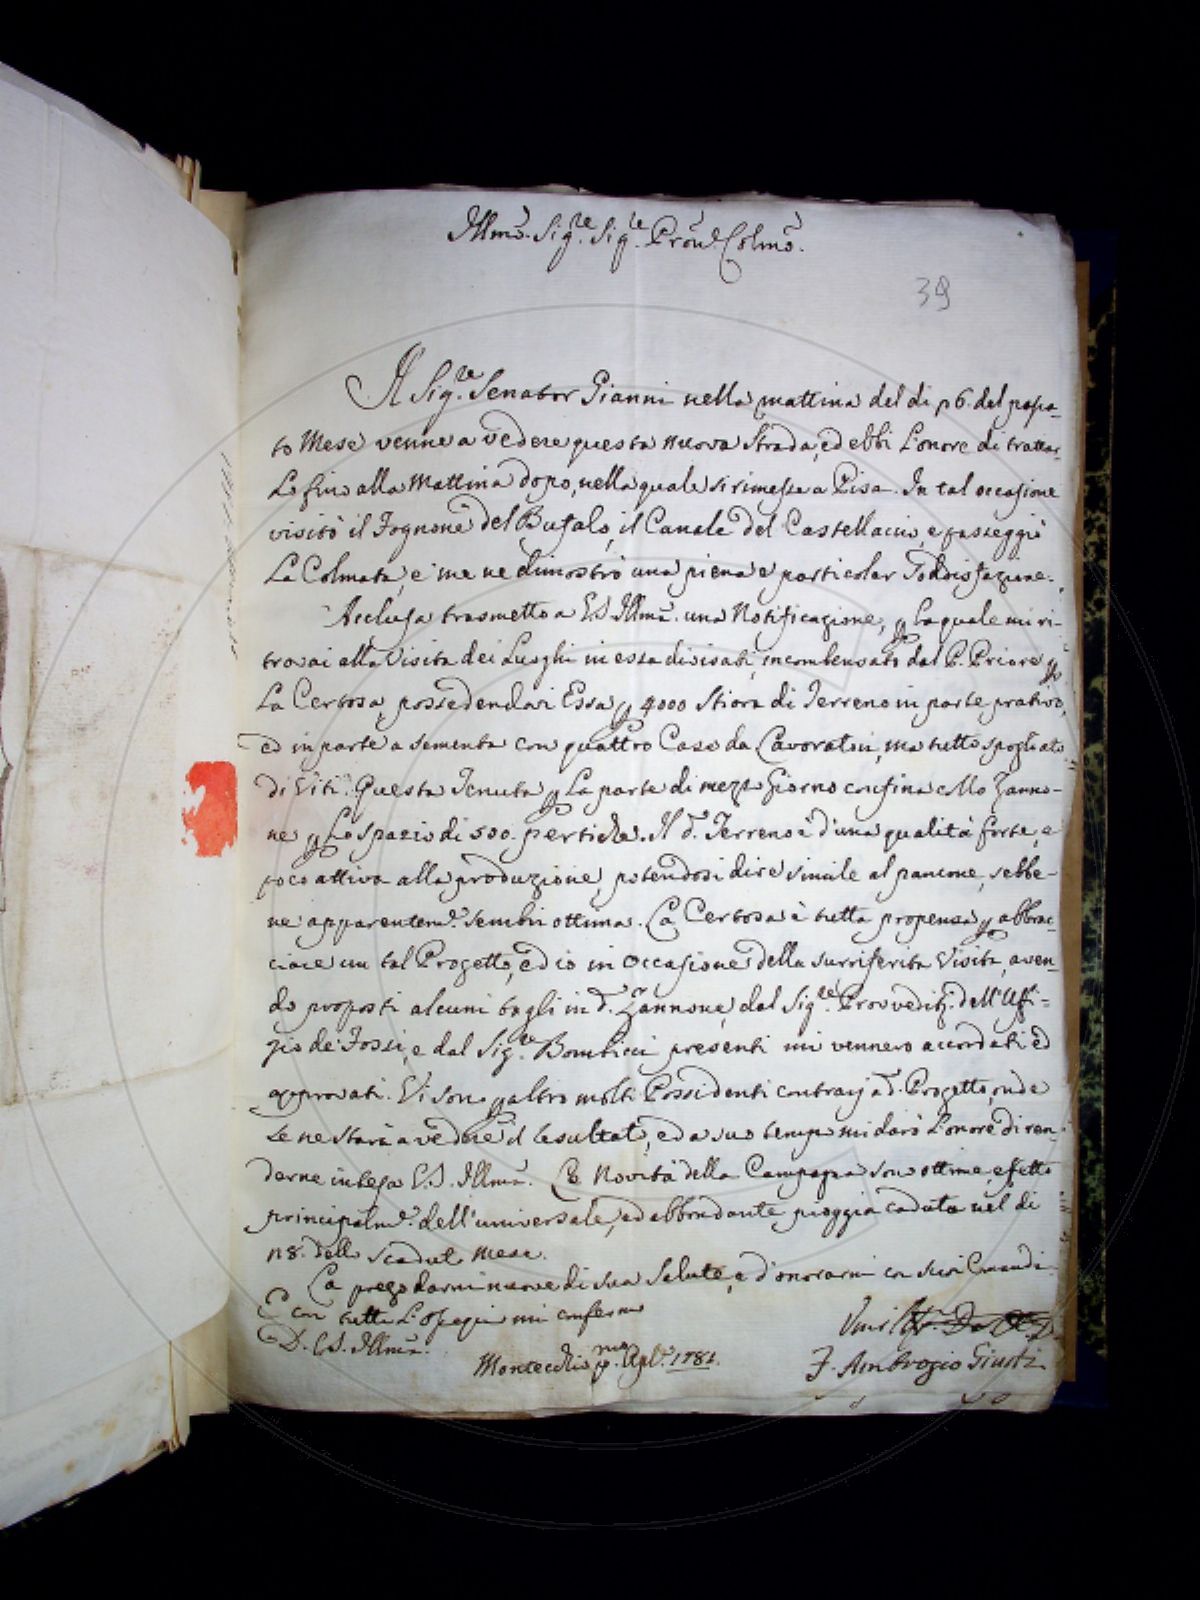 Illmo. Sig.re Sig.re Pron. Colmo.
39
Il Sig.re Senator Gianni nella mattina del dì 26. del passa-
to Mese venne a vedere questa nuova Strada, ed ebbi l'onore di trattar-
lo fino alla Mattina dopo, nella quale si rimesse a Pisa. In tal occasione
visitò il Fognone del Bufalo, il Canale del Castellaccio, e passeggiò
la Colmata, e me ne dimostrò una piena e particolar Soddisfazione.
Acclusa trasmetto a V.S. Illma. una Notificazione, p la quale mi ri-
trovai alla Visita dei Luoghi in essa divisati, incombensato dal P. Priore p
la Certosa, possedendovi Essa p 4000 Stiora di Terreno in parte prativo,
ed in parte a sementa con quattro Case da Lavoratori, ma tutto spogliato
di Viti. Questa Tenuta p la parte di mezzo Giorno confina collo Zanno-
ne p lo spazio di 500. pertiche. Il d. Terreno è d'una qualità forte, e
poco attiva alla produzione, potendosi dire simile al pancone, sebbe-
ne apparentem.e sembri ottima. La Certosa è tutta propensa p abbrac-
ciare un tal Progetto, ed io in occasione della surriferita Visita, aven-
do proposti alcuni tagli in d. Zannone, dal Sig.re Provvedit.r dell'Uffi-
zio de' Fossi, e dal Sig.re Bombicci presenti mi vennero accordati ed
approvati. Vi son p altro molti Possidenti contrarj a d. Progetto, onde
se ne starà a vedere il resultato, ed a suo tempo mi darò l'onore di ren-
derne intesa V.S. Illma. Le Novità della Campagna sono ottime, effetto
principalm.e dell'universale, ed abbondante pioggia caduta nel dì
28. dello scaduto Mese.
La prego darmi nuove di sua Salute, e d'onorarmi con suoi Comandi
E con tutto l'ossequio mi confermo
D. V.S. Illma.
Montecchio p.mo Aple. 1781.
F. Ambrogio Giusti